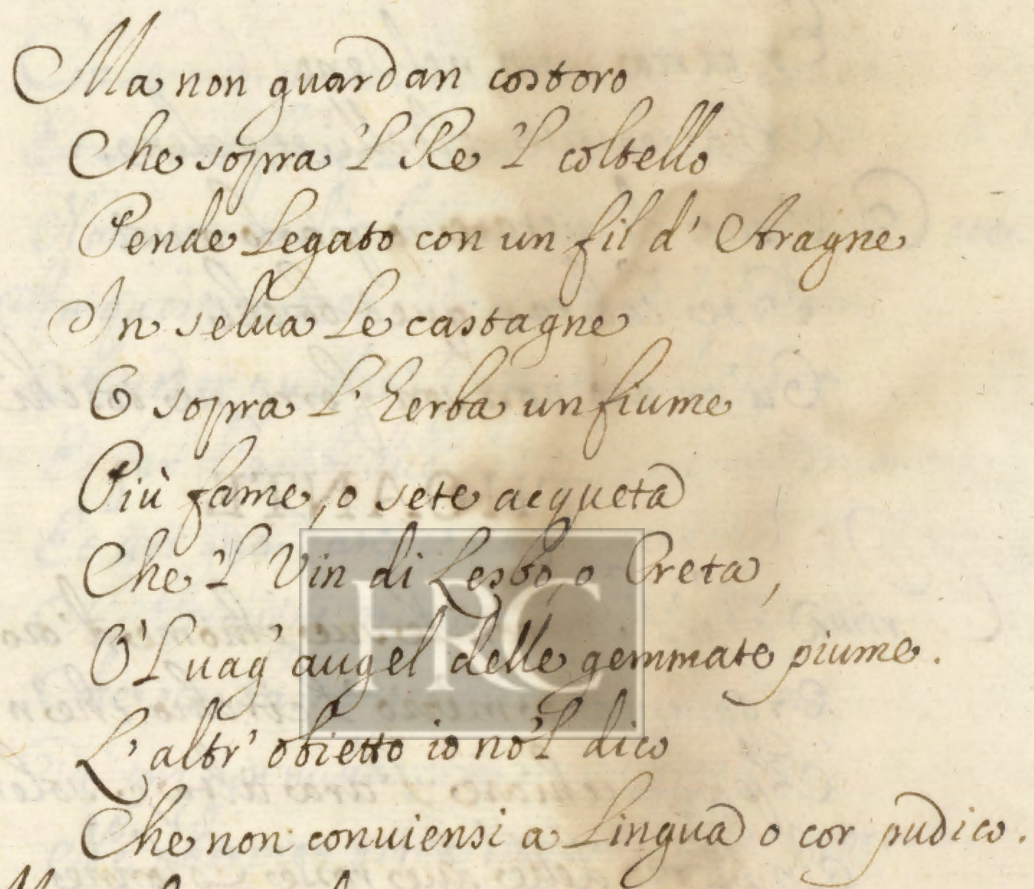 Ma non guardan costoro
Che sopra 'l Re 'l coltello
Pende legato con un fil d' Aragne
In selua le castagne
O sopra l' herba un fiume
Più fame, o sete acqueta
Che 'l Vin di Lesbo, o Creta,
O'l uag' augel delle gemmate piume.
L' altr' obietto io no'l dico
Che non conuiensi a lingua o cor pudico.
HRC